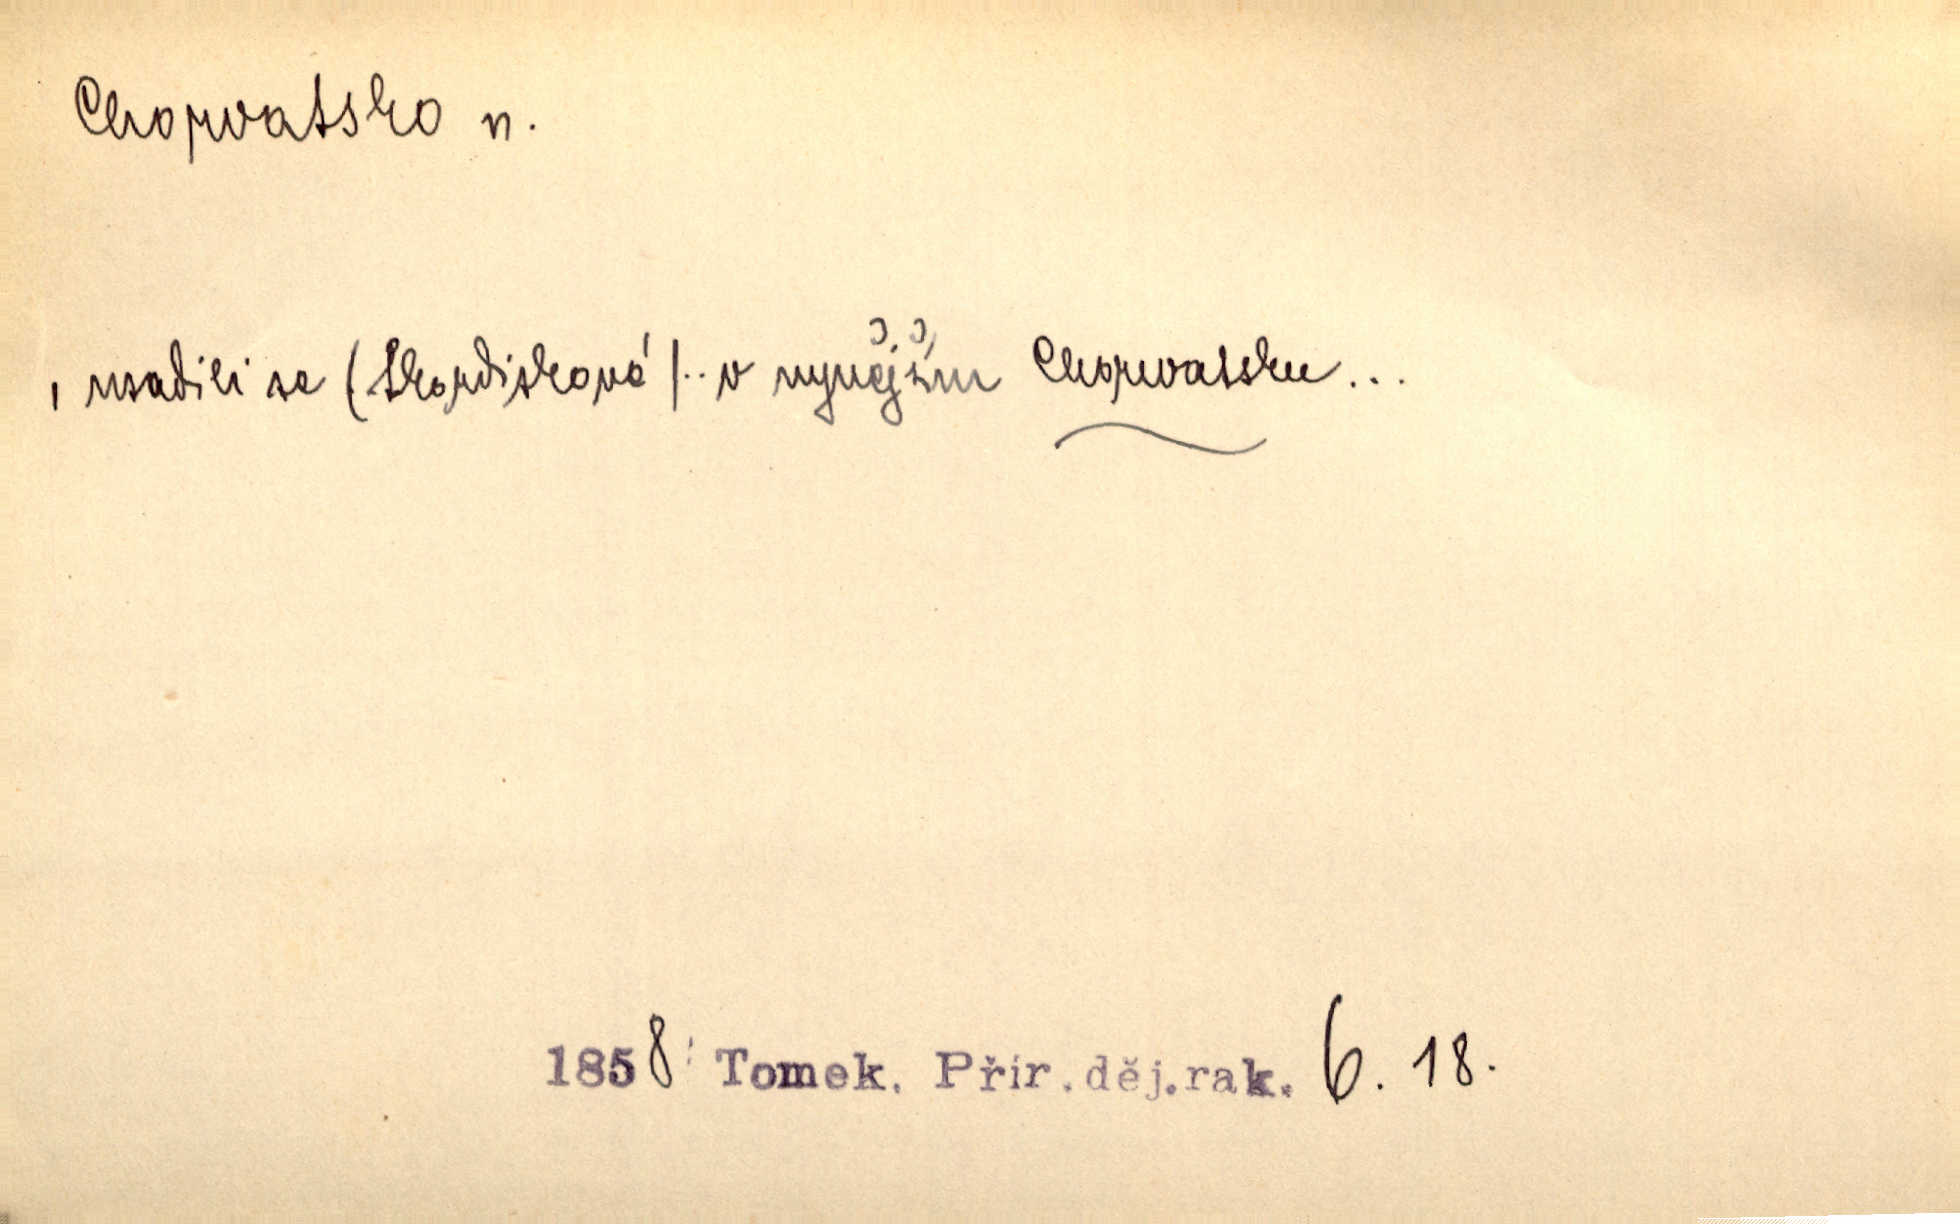 Chorvatsko n.
, usadili se (Skordiskové)... v nynějším Chorvatsku...
1858: Tomek. Přír. děj. rak. 6. 18.